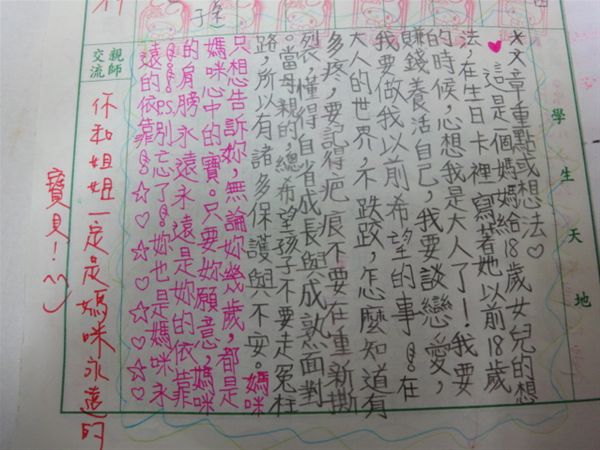 學生天地
*文章重點或想法♡
♥這是一個媽媽給18歲女兒的想
法,在生日卡裡,寫著她以前18歲
的時候,心想我是大人了!我要
賺錢養活自己,我要談戀愛,
我要做我以前希望的事。在
大人的世界,不跌跤,怎麼知道有
多疼,要記得疤痕不要在重新撕
裂,懂得自省成長與成熟面對
。當母親的,總希望孩子不要走冤枉
路,所以有諸多保護與不安。媽咪
只想告訴妳,無論妳幾歲,都是
媽咪心中的寶。只要妳願意,媽咪
的肩膀永遠永遠是妳的依靠
。PS.別忘了!妳也是媽咪永
遠的依靠☆♡☆♡☆♡☆♡
親師交流
你和姐姐一定是媽咪永遠的
寶貝!